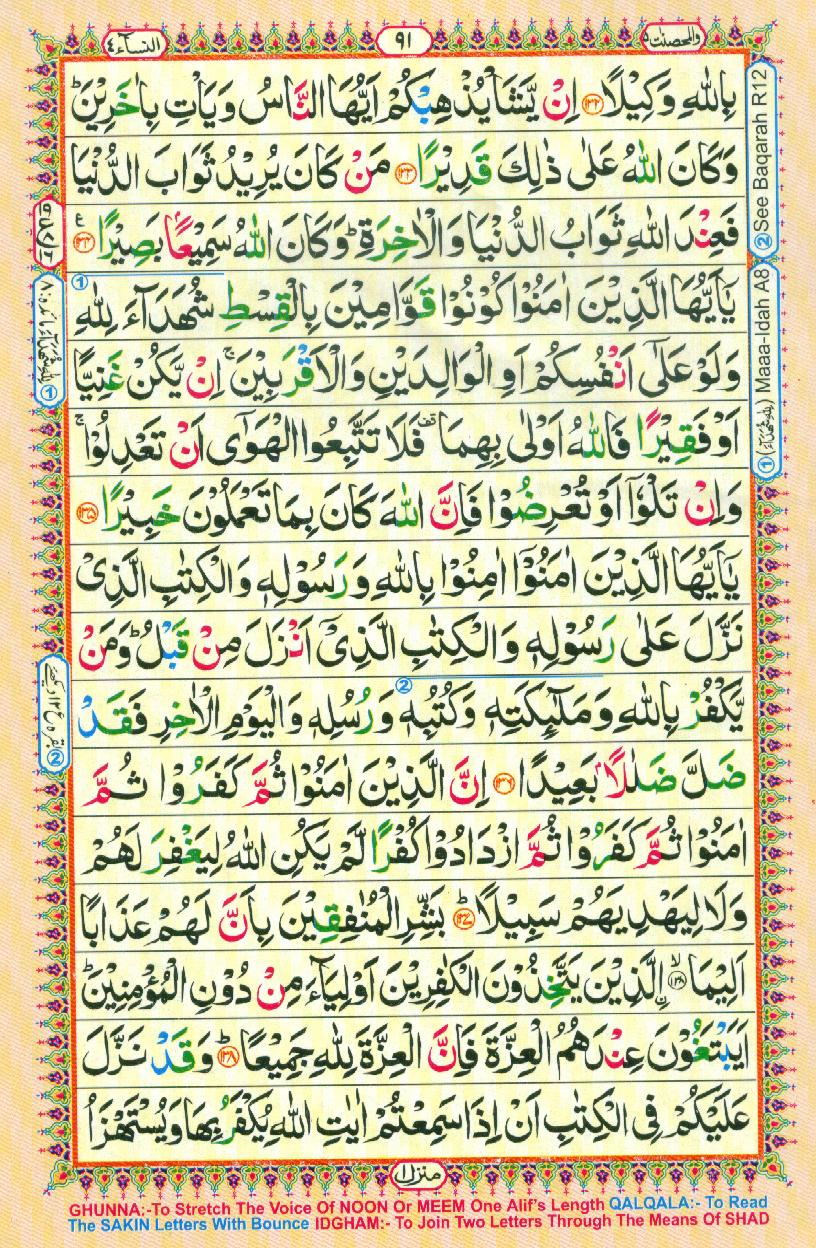 النسآء ٤
٩١
والمحصنت ٥
بِاللّٰهِ وَكِيْلًا ﴿١٣٢﴾ اِنْ يَّشَاْ يُذْهِبْكُمْ اَيُّهَا النَّاسُ وَيَاْتِ بِاٰخَرِيْنَ ؕ
وَكَانَ اللّٰهُ عَلٰى ذٰلِكَ قَدِيْرًا ﴿١٣٣﴾ مَنْ كَانَ يُرِيْدُ ثَوَابَ الدُّنْيَا
فَعِنْدَ اللّٰهِ ثَوَابُ الدُّنْيَا وَالْاٰخِرَةِ ؕ وَكَانَ اللّٰهُ سَمِيْعًۢا بَصِيْرًا ﴿١٣٤﴾
يٰۤاَيُّهَا الَّذِيْنَ اٰمَنُوْا كُوْنُوْا قَوّٰمِيْنَ بِالْقِسْطِ شُهَدَآءَ لِلّٰهِ
وَلَوْ عَلٰۤى اَنْفُسِكُمْ اَوِ الْوَالِدَيْنِ وَالْاَقْرَبِيْنَ ۚ اِنْ يَّكُنْ غَنِيًّا
اَوْ فَقِيْرًا فَاللّٰهُ اَوْلٰى بِهِمَا ۫ فَلَا تَتَّبِعُوا الْهَوٰۤى اَنْ تَعْدِلُوْا ۚ
وَاِنْ تَلْوٗۤا اَوْ تُعْرِضُوْا فَاِنَّ اللّٰهَ كَانَ بِمَا تَعْمَلُوْنَ خَبِيْرًا ﴿١٣٥﴾
يٰۤاَيُّهَا الَّذِيْنَ اٰمَنُوْۤا اٰمِنُوْا بِاللّٰهِ وَرَسُوْلِهٖ وَالْكِتٰبِ الَّذِىْ
نَزَّلَ عَلٰى رَسُوْلِهٖ وَالْكِتٰبِ الَّذِىْۤ اَنْزَلَ مِنْ قَبْلُ ؕ وَمَنْ
يَّكْفُرْ بِاللّٰهِ وَمَلٰٓئِكَتِهٖ وَكُتُبِهٖ وَرُسُلِهٖ وَالْيَوْمِ الْاٰخِرِ فَقَدْ
ضَلَّ ضَلٰلًۢا بَعِيْدًا ﴿١٣٦﴾ اِنَّ الَّذِيْنَ اٰمَنُوْا ثُمَّ كَفَرُوْا ثُمَّ
اٰمَنُوْا ثُمَّ كَفَرُوْا ثُمَّ ازْدَادُوْا كُفْرًا لَّمْ يَكُنِ اللّٰهُ لِيَغْفِرَ لَهُمْ
وَلَا لِيَهْدِيَهُمْ سَبِيْلًا ؕ ﴿١٣٧﴾ بَشِّرِ الْمُنٰفِقِيْنَ بِاَنَّ لَهُمْ عَذَابًا
اَلِيْمَا ۙ ﴿١٣٨﴾ ۨالَّذِيْنَ يَتَّخِذُوْنَ الْكٰفِرِيْنَ اَوْلِيَآءَ مِنْ دُوْنِ الْمُؤْمِنِيْنَ ؕ
اَيَبْتَغُوْنَ عِنْدَهُمُ الْعِزَّةَ فَاِنَّ الْعِزَّةَ لِلّٰهِ جَمِيْعًا ؕ ﴿١٣٨﴾ وَقَدْ نَزَّلَ
عَلَيْكُمْ فِى الْكِتٰبِ اَنْ اِذَا سَمِعْتُمْ اٰيٰتِ اللّٰهِ يُكْفَرُ بِهَا وَيُسْتَهْزَاُ
② See Baqarah R12
① (لِلّٰهِ شُهَدَآءَ) Maaa-Idah A8
منزل ١
GHUNNA:-To Stretch The Voice Of NOON Or MEEM One Alif's Length QALQALA:- To Read
The SAKIN Letters With Bounce IDGHAM:- To Join Two Letters Through The Means Of SHAD